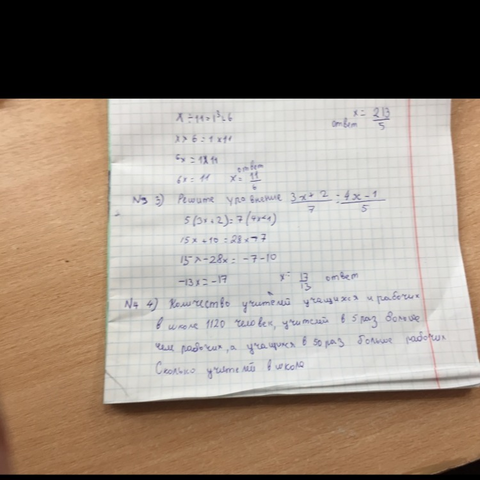 x = 213/5
ответ
x · 6 = 1 × 11
6x = 11
x = 11/6
ответ
N3 3) Решите уровнение 3x+2/7 = 4x-1/5
5(3x+2)=7(4x-1)
15x+10=28x-7
15x-28x=-7-10
-13x=-17
x= 17/13 ответ
N4 4) Количество учителей учащихся и рабочих
в школе 1120 человек, учителей в 5 раз больше
чем рабочих, а учащихся в 50 раз больше рабочих
Сколько учителей в школе